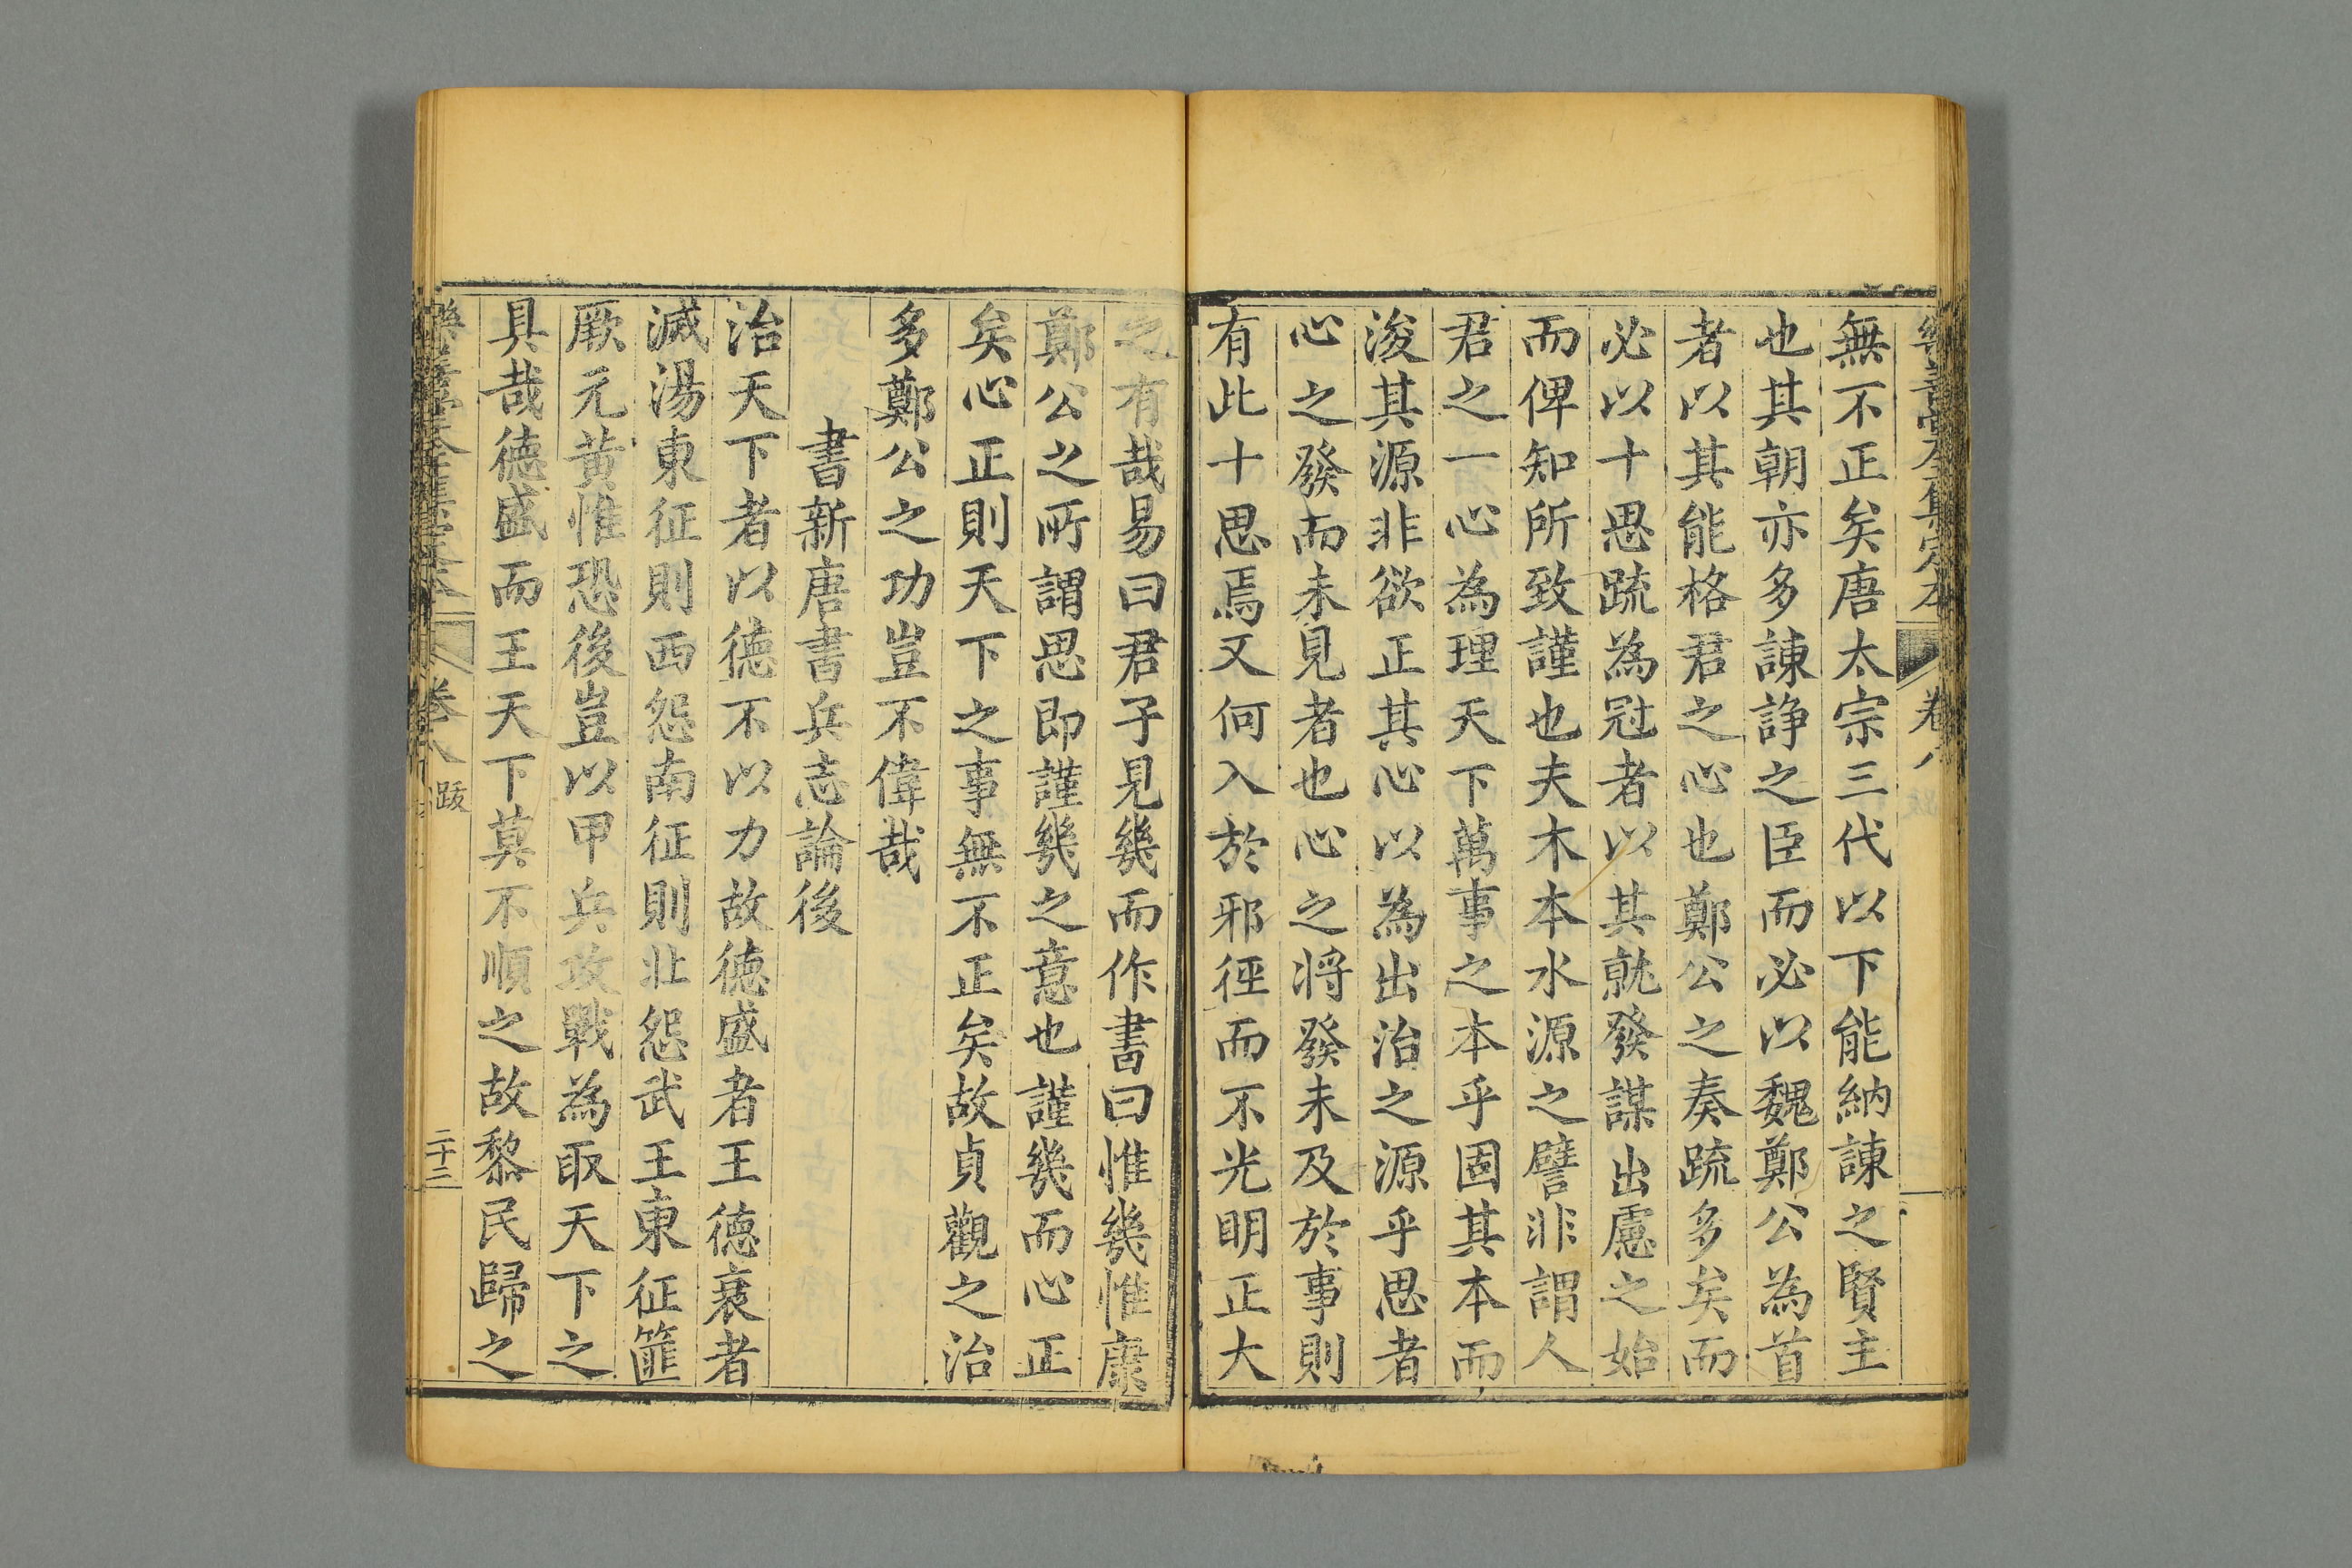 無不正矣唐太宗三代以下能納諫之賢主
也其朝亦多諫諍之臣而必以魏鄭公為首
者以其能格君之心也鄭公之奏疏多矣而
必以十思疏為冠者以其就發謀出慮之始
而俾知所致謹也夫木本水源之譬非謂人
君之一心為理天下萬事之本乎固其本而
浚其源非欲正其心以為出治之源乎思者
心之發而未見者也心之將發未及於事則
有此十思焉又何入於邪徑而不光明正大
之有哉易曰君子見幾而作書曰惟幾惟康
鄭公之所謂思即謹幾之意也謹幾而心正
矣心正則天下之事無不正矣故貞觀之治
多鄭公之功豈不偉哉
書新唐書兵志論後
治天下者以德不以力故德盛者王德衰者
滅湯東征則西怨南征則北怨武王東征篚
厥元黃惟恐後豈以甲兵攻戰為取天下之
具哉德盛而王天下莫不順之故黎民歸之
樂善堂全集定本
卷八
跋
二十三